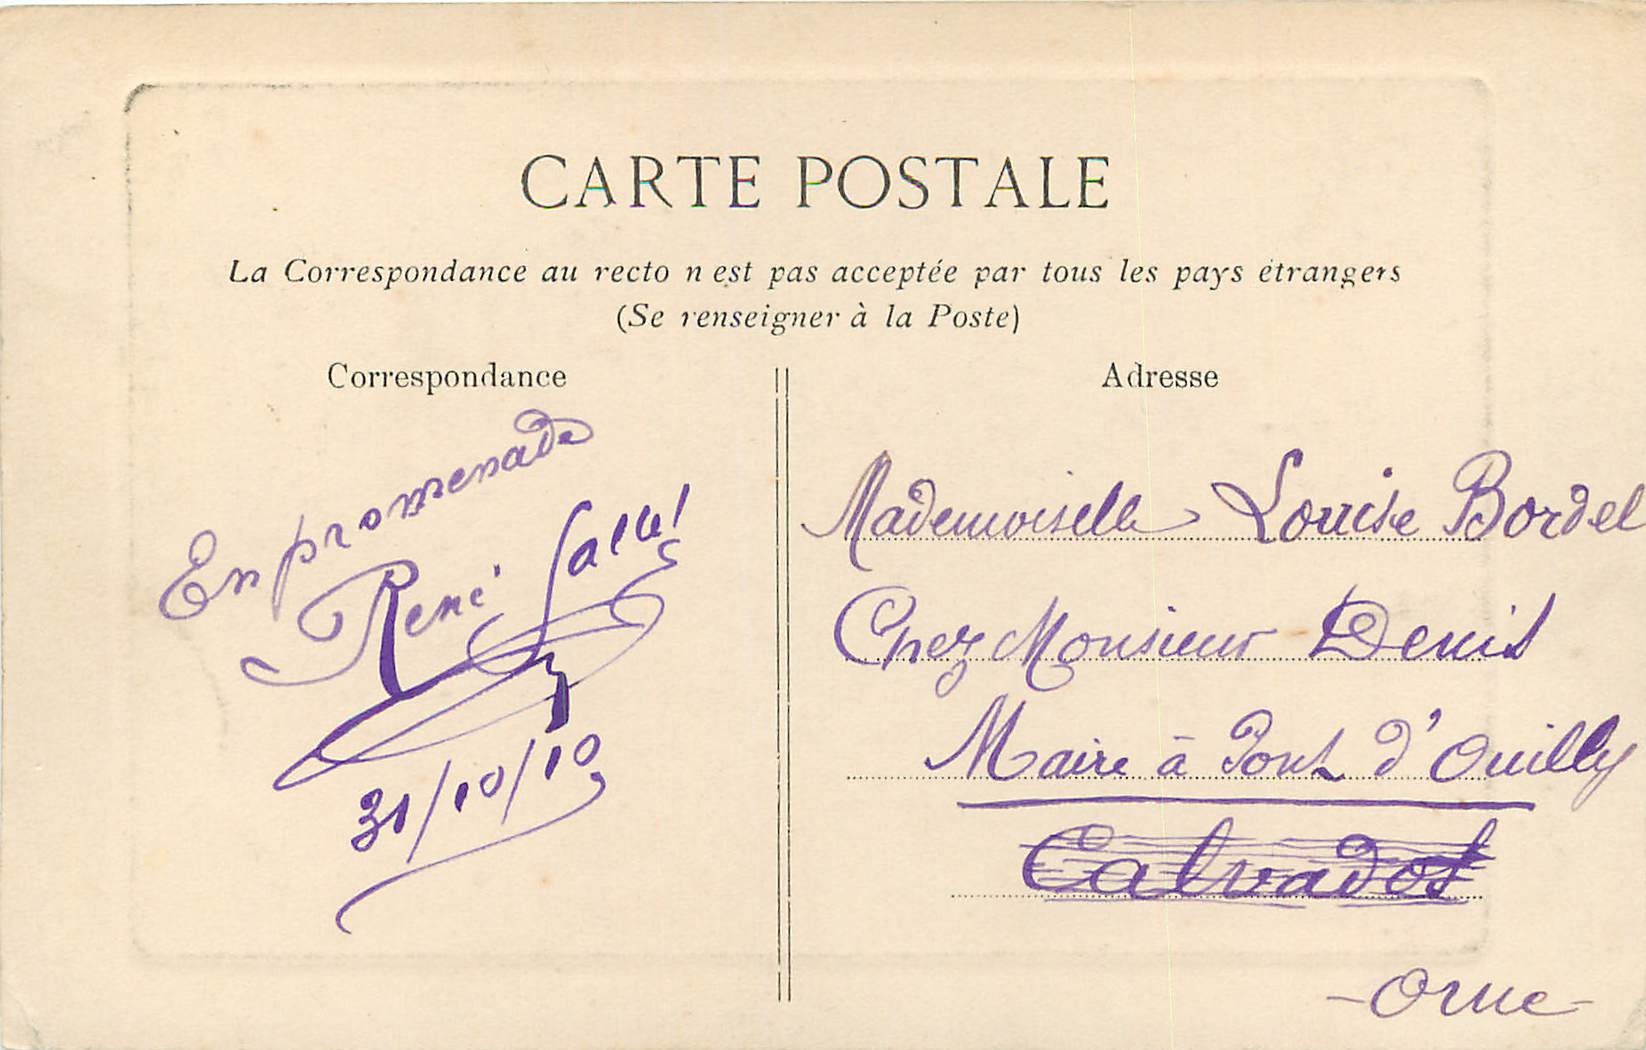 CARTE POSTALE
La Correspondance au recto n'est pas acceptée par tous les pays étrangers
(Se renseigner à la Poste)
Correspondance
En promenade
René
31/10/10
Adresse
Mademoiselle Louise Bordel
Chez Monsieur Denis
Maire à Pont d'Ouilly
Calvados
- Orne -